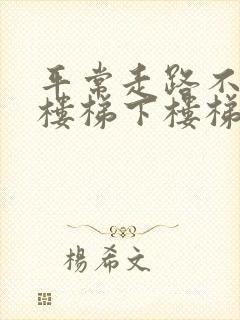 平常走路不
樓梯下樓梯
楊希文